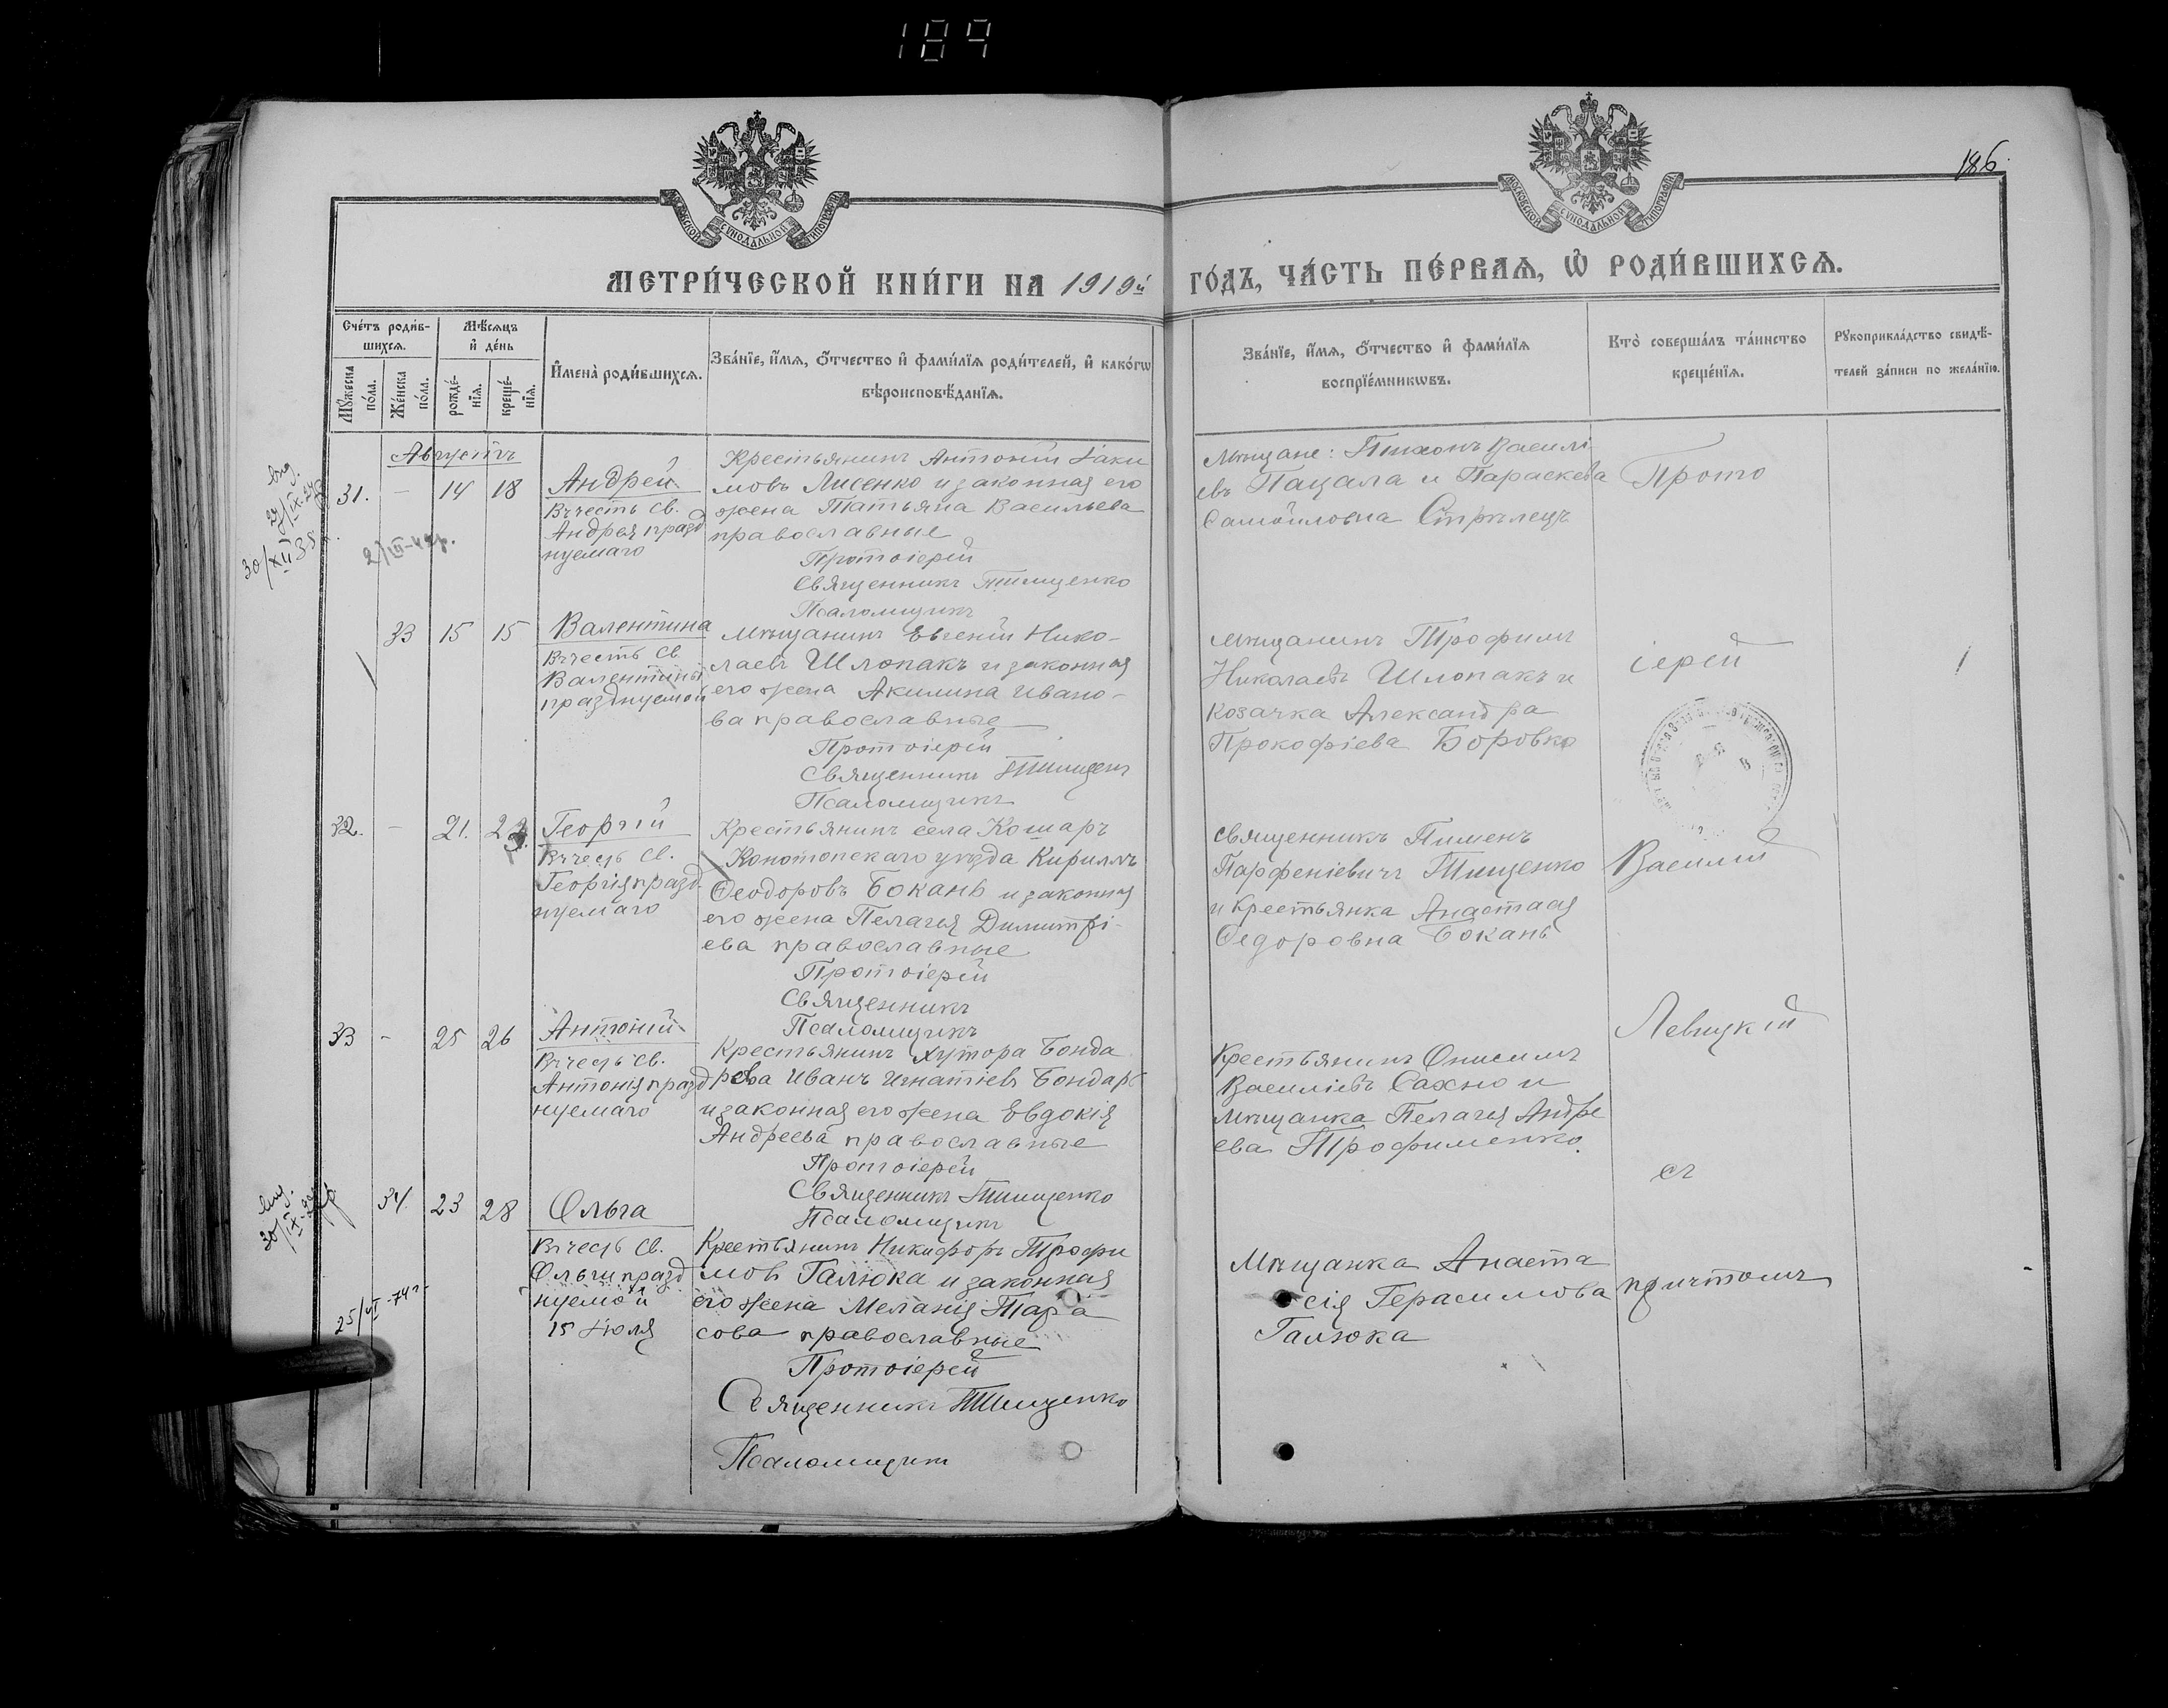 189
186.
МОСКОВСКОЙ СѴНОДАЛЬНОЙ ТИПОГРАФІИ
МОСКОВСКОЙ СѴНОДАЛЬНОЙ ТИПОГРАФІИ
МЕТРИ́ЧЕСКОЙ КНИ́ГИ НА 1919й ГО́ДЪ, ЧА́СТЬ ПЕ́РВАѦ, Ѡ҆ РОДИ́ВШИХСѦ.
Сче́тъ роди́в-
шихсѧ.
Мꙋ́жеска
по́ла.
Же́нска
по́ла.
Мѣ́сѧцъ
и҆ де́нь
рожде́-
нїѧ.
креще́-
нїѧ.
И҆мена̀ роди́вшихсѧ.
Зва́нїе, и҆́мѧ, ѻ҆́тчество и҆ фами́лїѧ роди́телей, и҆ како́гѡ
вѣроисповѣ́данїѧ.
Зва́нїе, и҆́мѧ, ѻ҆́тчество и҆ фами́лїѧ
воспрїе́мникѡвъ.
Кто̀ соверша́лъ та́инство
креще́нїѧ.
Рꙋкоприкла́дство свидѣ́-
телей за́писи по жела́нїю.
Августъ
31. - 14 18
Андрей
Въ честь св.
Андрея празд
нуемаго
Крестьянинъ Антоній Іаки
мовъ Лисенко и законная его
жена Татьяна Васильева
православные
Протоіерей
Священникъ Тищенко
Псаломщикъ
Мѣщане: Тихонъ Василі-
евъ Пацала и Параскева
Самойловна Стрѣлецъ
Прото
30/XII 35
33 15 15
Валентина
Въ честь св.
Валентины
празднуемой
Мѣщанинъ Евгеній Нико-
лаевъ Шлопакъ и законная
его жена Акилина Ивано-
ва православные
Протоіерей
Священникъ Тищен
Псаломщикъ
Мѣщанинъ Трофимъ
Николаевъ Шлопакъ и
козачка Александра
Прокофіева Боровко
іерей
32. - 21. 23.
Георгій
Въ честь св.
Георгія празд-
нуемаго
Крестьянинъ села Кошаръ
Конотопскаго уѣзда Кириллъ
Ѳеодоровъ Бокань и законная
его жена Пелагея Димитрі-
ева православные
Протоіерей
Священникъ
Псаломщикъ
Священникъ Пименъ
Парфеніевичъ Тищенко
и крестьянка Анастасія
Ѳедоровна Бокань
Василій
33 - 25 26
Антоній
Въ честь св.
Антонія празд
нуемаго
Крестьянинъ хутора Бонда
рева Иванъ Игнатіевъ Бондарь
и законная его жена Евдокія
Андреева православные
Протоіерей
Священникъ Тищенко
Псаломщикъ
Крестьянинъ Онисимъ
Василіевъ Сахно и
мѣщанка Пелагея Андре
ева Трофименко.
Левицкій
съ
34. 23 28
Ольга
Въ честь св.
Ольги празд
нуемой
15 Іюля
Крестьянинъ Никифоръ Трофи
мовъ Галюка и законная
его жена Меланія Тара
сова православные
Протоіерей
Священникъ Тищенко
Псаломщикъ
Мѣщанка Анаста
сія Герасимова
Галюка
причтомъ
25/VI-74г.